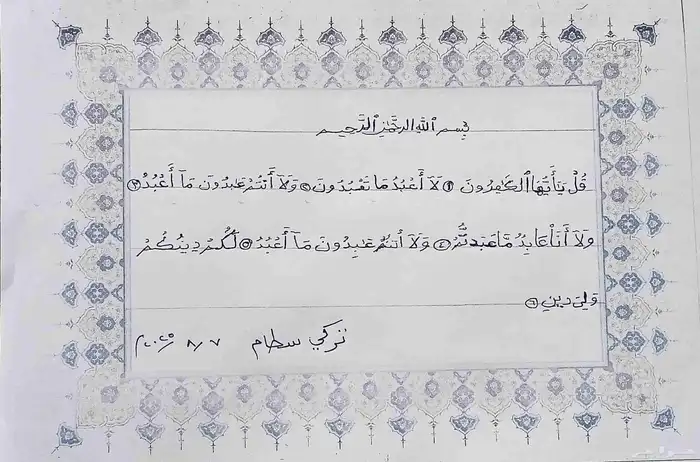 بِسم ٱللهِ الرحمٰنِ الرَّحيم
قُلْ يَٰٓأَيُّهَا ٱلْكَٰفِرُونَ ① لَآ أَعْبُدُ مَا تَعْبُدُونَ ② وَلَآ أَنتُمْ عَٰبِدُونَ مَآ أَعْبُدُ ③
وَلَآ أَنَا۠ عَابِدٌ مَّا عَبَدتُّمْ ④ وَلَآ أَنتُمْ عَٰبِدُونَ مَآ أَعْبُدُ ⑤ لَكُمْ دِينُكُمْ
وَلِيَ دِينِ ⑥
تركي سطام ٨/٧/٢٠٢٥م